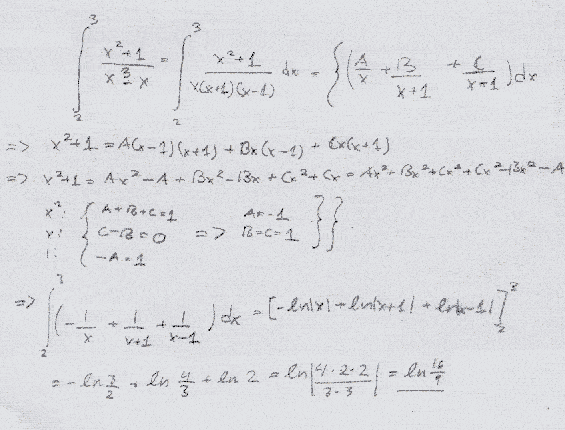 ∫₂³ (x²+1)/(x³-x) = ∫₂³ (x²+1)/(x(x+1)(x-1)) dx = { (A/x + B/(x+1) + C/(x-1)) dx
=> x²+1 = A(x-1)(x+1) + Bx(x-1) + Cx(x+1)
=> x²+1 = Ax² - A + Bx² - Bx + Cx² + Cx =
x²: { A+B+C=1 A=-1
x: { C-B=0 => B=C=1 }}
1: { -A=1
=> ∫₂³ (-1/x + 1/(x+1) + 1/(x-1)) dx = [-ln|x| + ln|x+1| + ln|x-1|]₂³
= -ln 3/2 + ln 4/3 + ln 2 = ln|4·2·2/3·3| = ln 16/9